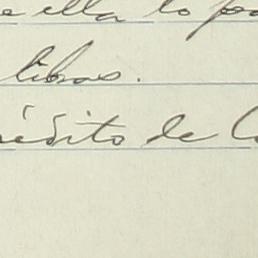 e ella lo pa
libras.
rédito de l